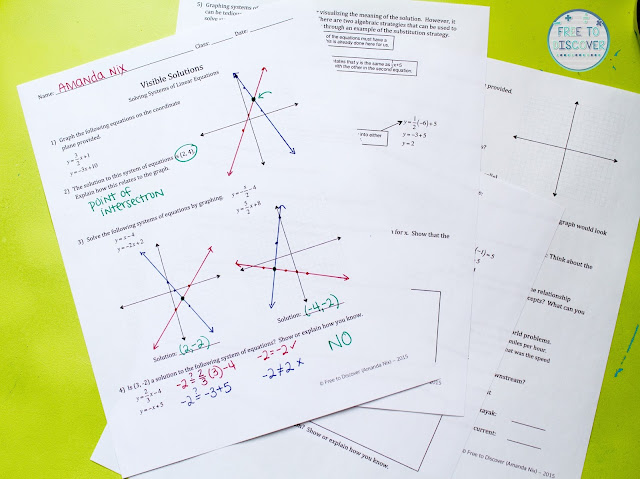 Name: Amanda Nix
Class:
Date:
Visible Solutions
Solving Systems of Linear Equations
1) Graph the following equations on the coordinate
plane provided.
y = 3/2 x + 1
y = -3x + 10
2) The solution to this system of equations is (2, 4).
Explain how this relates to the graph.
POINT OF
INTERSECTION
3) Solve the following systems of equations by graphing.
y = x - 4
y = -2x + 2
y = 5/2 x + 8
Solution: (2, -2)
Solution: (-4, -2)
4) Is (3, -2) a solution to the following system of equations? Show or explain how you know.
y = 2/3 x - 4
y = -x + 5
-2 ≟ 2/3 (3) - 4
-2 = -2 ✓
-2 ≟ -3 + 5
-2 ≠ 2 x
NO
© Free to Discover (Amanda Nix) – 2015
5) Graphing systems
visualizing the meaning of the solution. However, it
here are two algebraic strategies that can be used to
through an example of the substitution strategy.
of the equations must have a
is already done here for us.
states that y is the same as x+5
with the other in the second equation.
into either
y = 1/2 (-6) + 5
y = -3 + 5
y = 2
for x. Show that the
2015
? Show or explain how you know.
provided.
graph would look
Think about the
relationship
cepts? What can you
world problems.
miles per hour.
hat was the speed
wnstream?
kayak:
current:
© Free to Discover (Amanda Nix) – 2015
FREE TO
DISCOVER